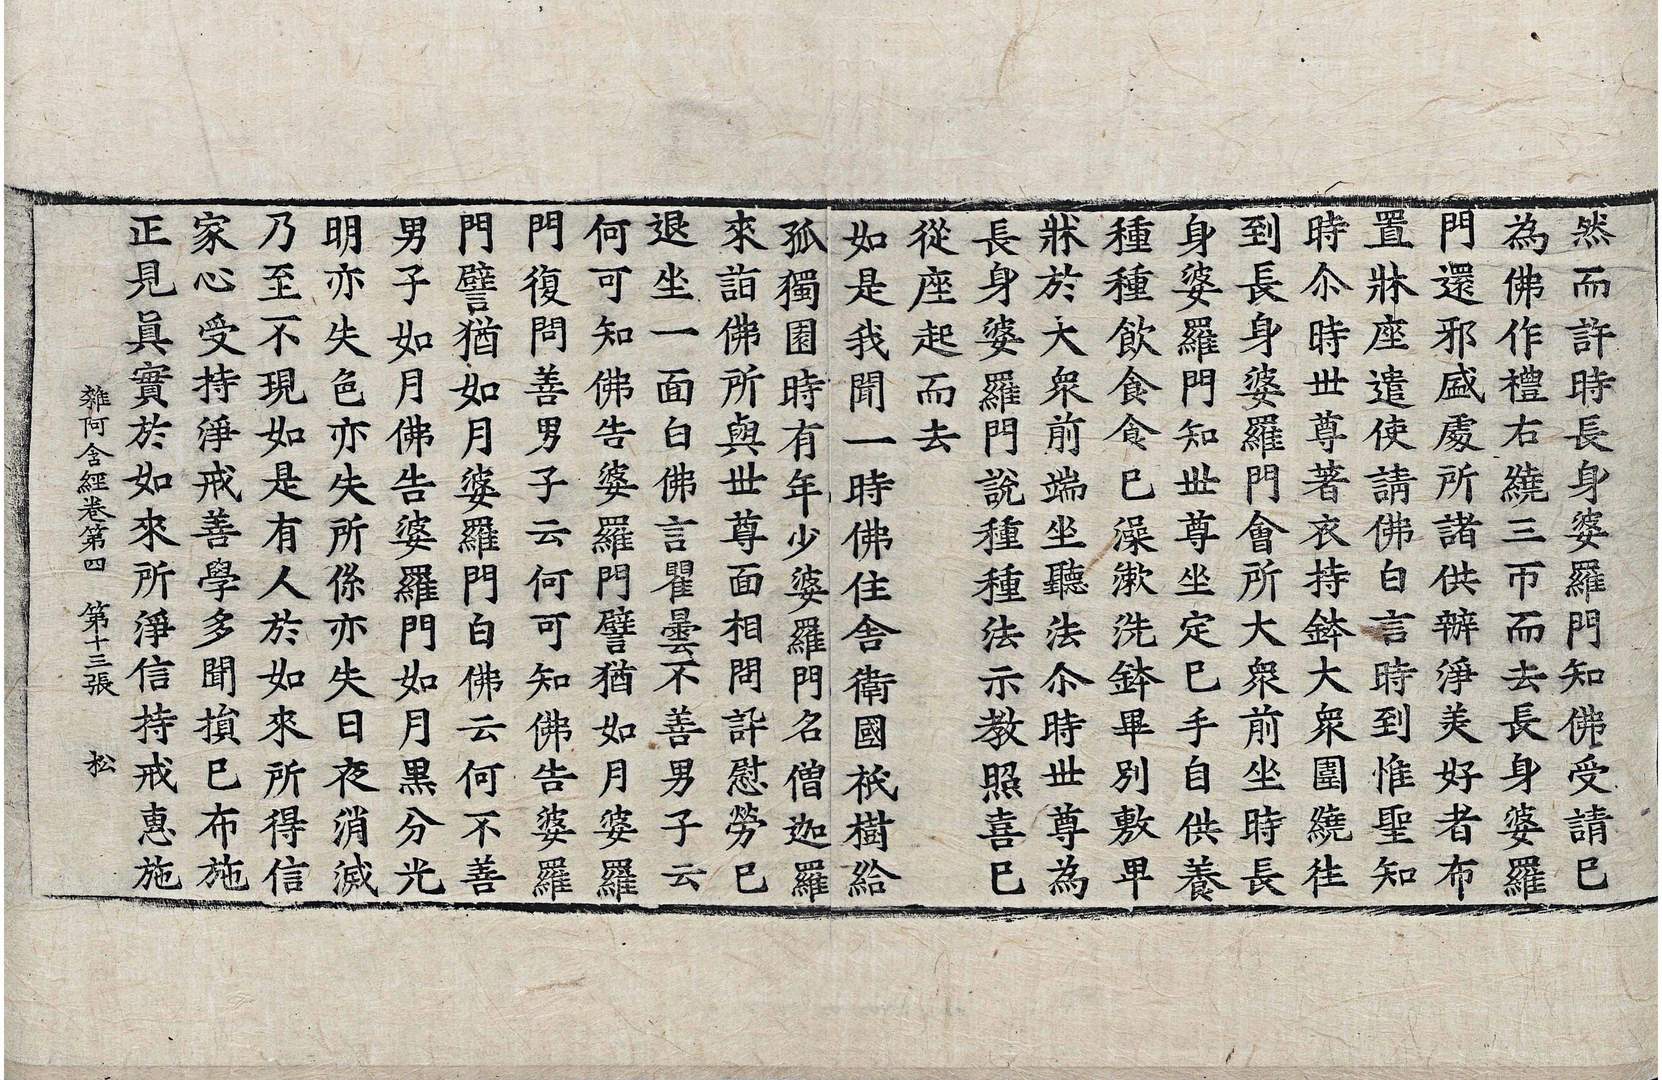 然而許時長身婆羅門知佛受請已
為佛作禮右繞三帀而去長身婆羅
門還邪盛處所諸供辦淨美好者布
置牀座遣使請佛白言時到惟聖知
時尒時世尊著衣持鉢大衆圍繞往
到長身婆羅門會所大衆前坐時長
身婆羅門知世尊坐定已手自供養
種種飲食食已澡漱洗鉢畢別敷卑
牀於大衆前端坐聽法尒時世尊為
長身婆羅門說種種法示教照喜已
從座起而去
如是我聞一時佛住舍衛國祇樹給
孤獨園時有年少婆羅門名僧迦羅
來詣佛所與世尊面相問訊慰勞已
退坐一面白佛言瞿曇不善男子云
何可知佛告婆羅門譬猶如月婆羅
門復問善男子云何可知佛告婆羅
門譬猶如月婆羅門白佛云何不善
男子如月佛告婆羅門如月黒分光
明亦失色亦失所係亦失日夜消滅
乃至不現如是有人於如來所得信
家心受持淨戒善學多聞損已布施
正見眞實於如來所淨信持戒惠施
雜阿含經卷第四　第十三張　松